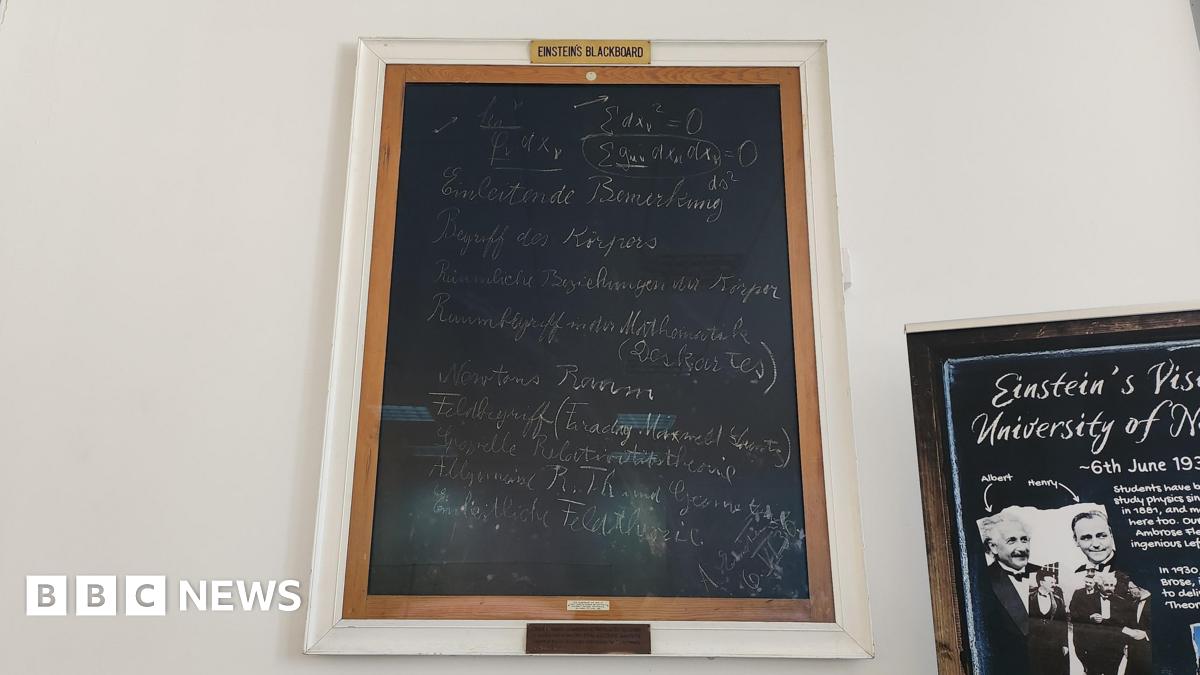 EINSTEIN'S BLACKBOARD
Σ dxν² = 0
φν dxν
Σ gμν dxμ dxν = 0
ds²
Einleitende Bemerkung
Begriff des Körpers
Räumliche Beziehungen der Körper
Raumbegriff in der Mathematik
(Deskartes)
Newtons Raum
Feldbegriff (Faraday. Maxwell Lorentz)
Spezielle Relativitätstheorie
Allgemeine R. Th und Geometrie
Einheitliche Feldtheorie
A. Einstein
Einstein's Vis
University of N
~6th June 193
Albert
Henry
Students have b
study physics sin
in 1881, and m
here too. Ou
Ambrose Fle
ingenious Lef
In 1930,
Brose,
to deliv
'Theor
BBC NEWS